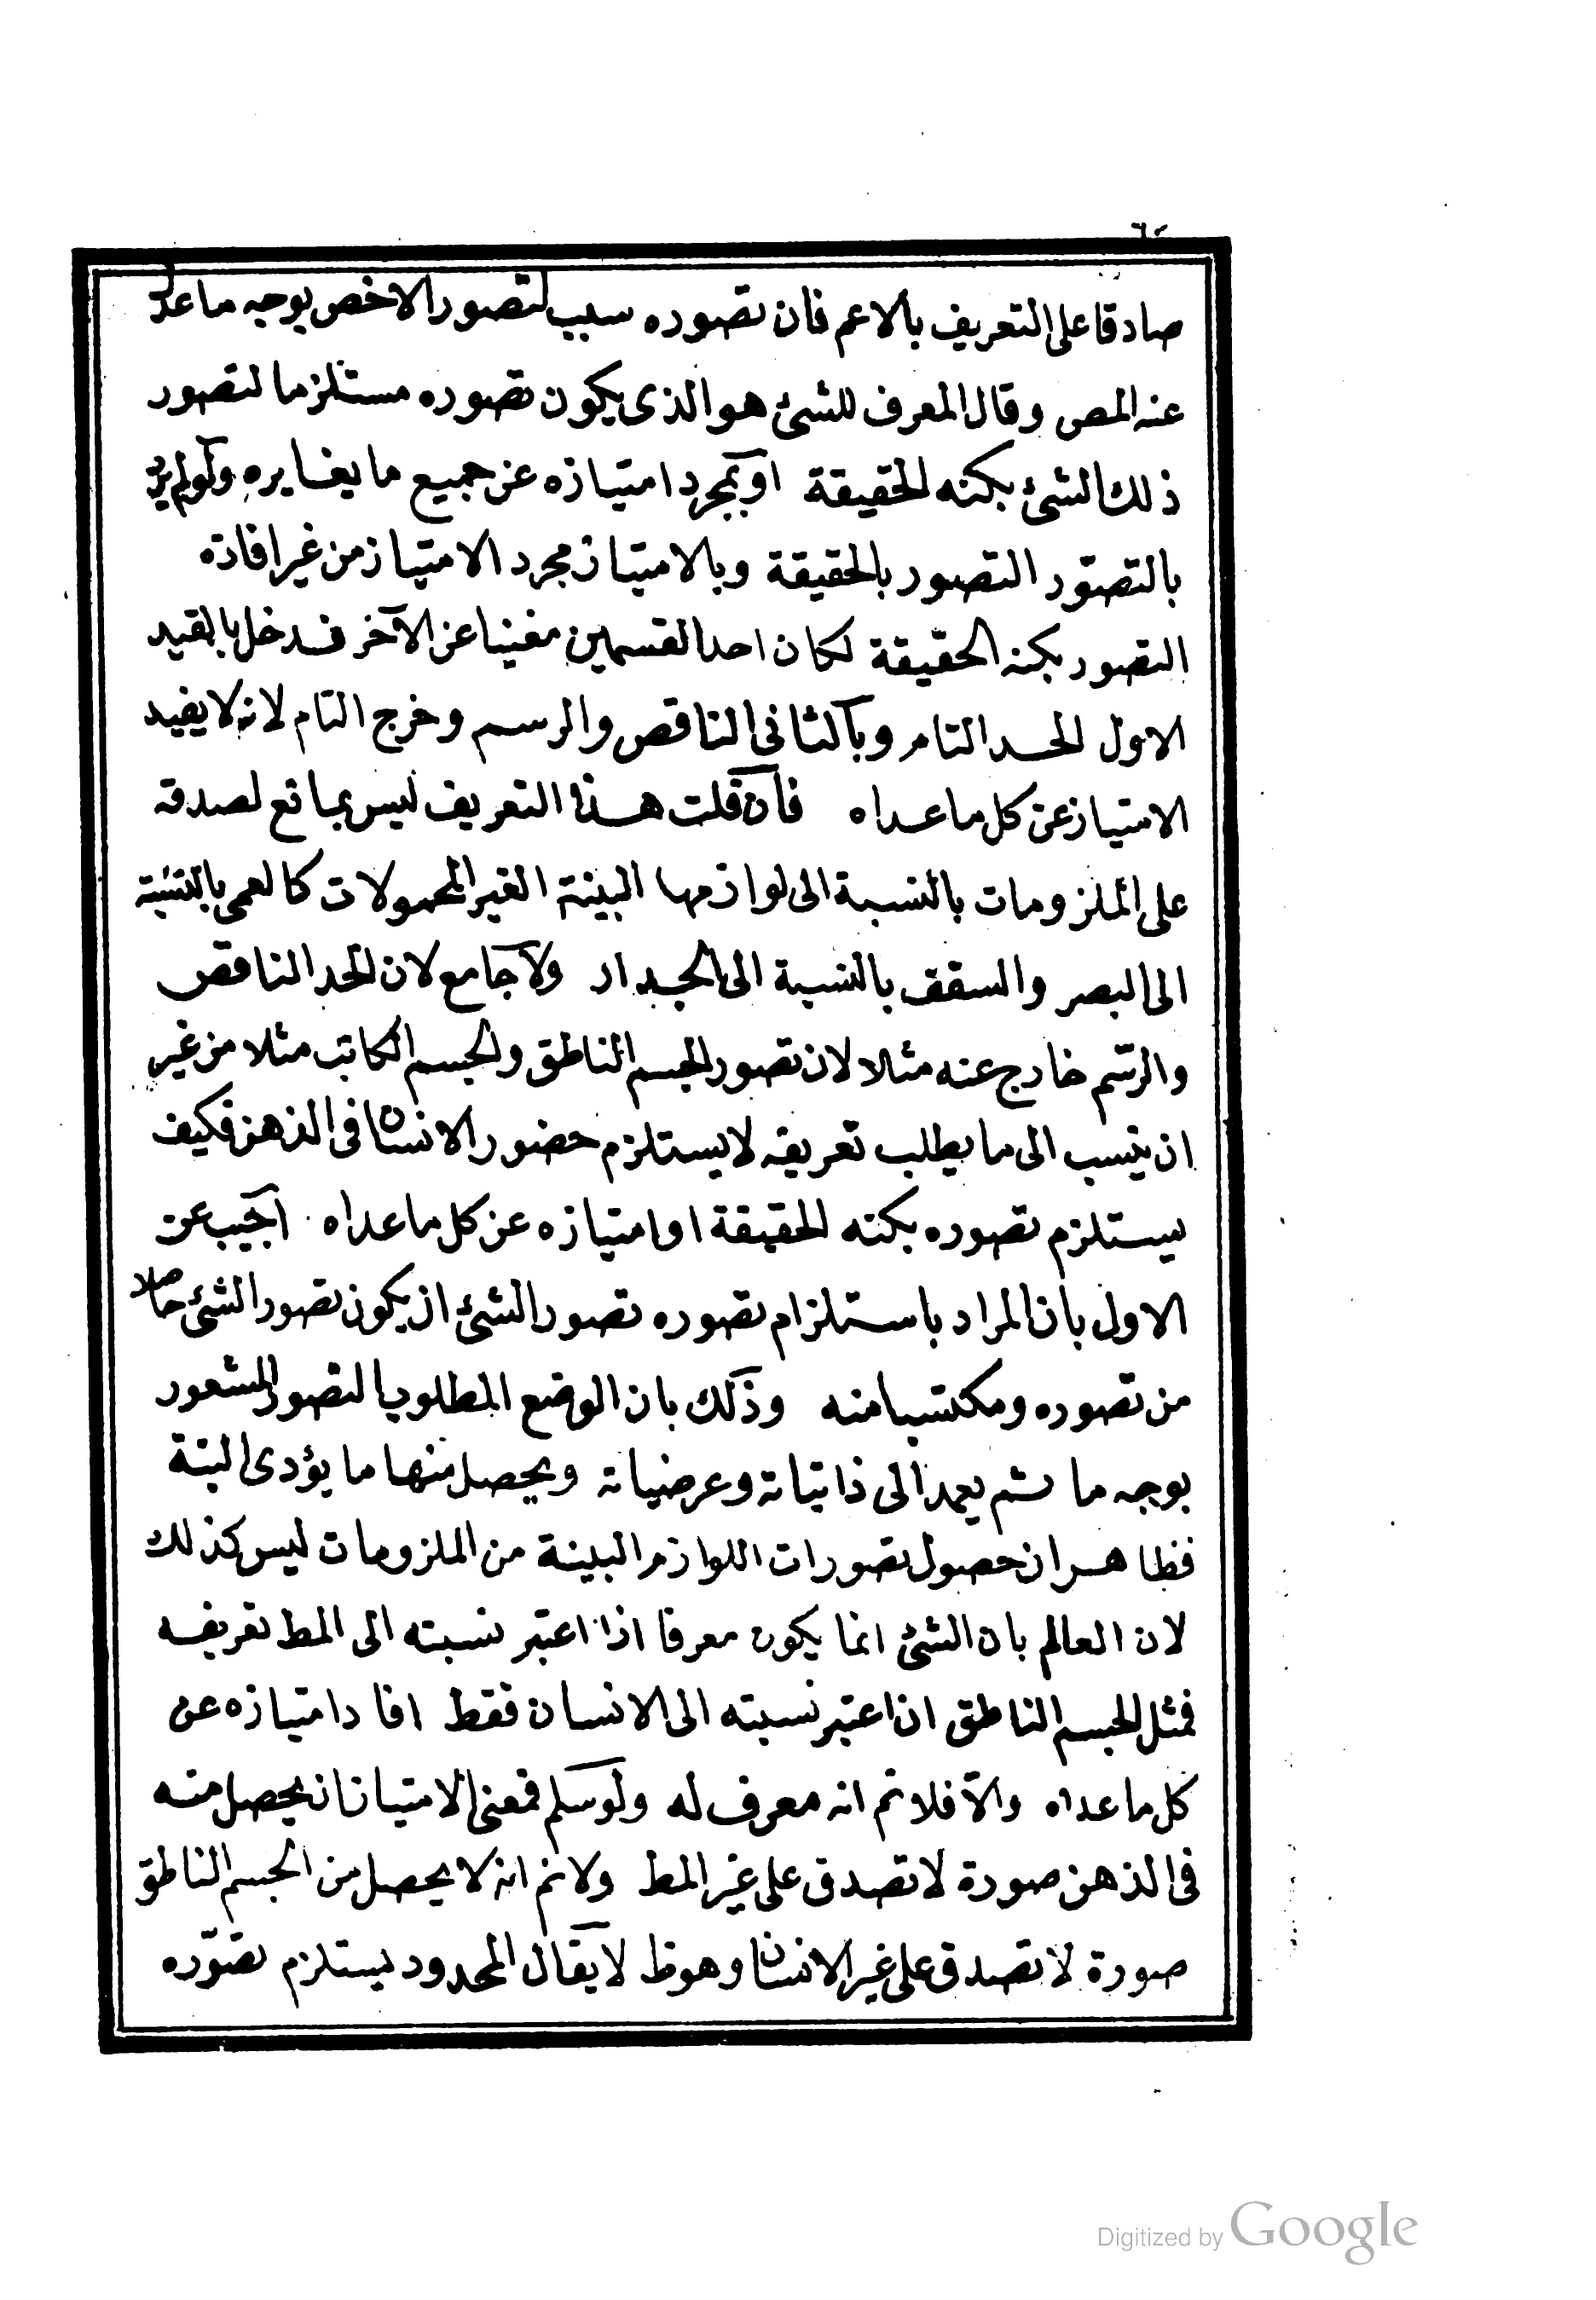 صادقا على التعريف بالاعم فان تصوره سبب لتصور الاخص بوجه ما عدل
عنه المص وقال المعرف للشئ هو الذى يكون تصوره مستلزما لتصور
ذلك الشئ بكنه الحقيقة او بمجرد امتيازه عن جميع ما يغايره ولو لم يرد
بالتصور التصور بالحقيقة وبالامتياز مجرد الامتياز من غير افادة
التصور بكنه الحقيقة لكان احد القسمين مغنيا عن الآخر فدخل بالقيد
الاول الحد التام وبالثانى الناقص والرسم وخرج التام لانه لا يفيد
الامتياز عن كل ما عداه فان قلت هذا التعريف ليس بمانع لصدقه
على الملزومات بالنسبة الى لوازمها البينة الغير المحمولات كالعمى بالنسبة
الى البصر والسقف بالنسبة الى الجدار ولا جامع لان الحد الناقص
والرسم خارج عنه مثلا لان تصور الجسم الناطق والجسم الكاتب مثلا من غير
ان ينسب الى ما يطلب تعريفه لا يستلزم حضور الانسان فى الذهن فكيف
يستلزم تصوره بكنه الحقيقة او امتيازه عن كل ما عداه اجيب عن
الاول بان المراد باستلزام تصوره تصور الشئ ان يكون تصور الشئ حاصلا
من تصوره ومكتسبا منه وذلك بان الوضع المطلوب التصور المشعور
بوجه ما ثم يعمد الى ذاتياته وعرضياته ويحصل منها ما يؤدى البتة
فظاهر ان حصول تصورات اللوازم البينة من الملزومات ليس كذلك
لان العالم بان الشئ انما يكون معرفا اذا اعتبر نسبته الى المط تعريفه
فمثل الجسم الناطق ان اعتبر نسبته الى الانسان فقط افاد امتيازه عن
كل ما عداه والا فلا نم انه معرف له ولو سلم فمعنى الامتياز ان يحصل منه
فى الذهن صورة لا تصدق على غير المط ولا نم انه لا يحصل من الجسم الناطق
صورة لا تصدق على غير الانسان وهو ظ لا يقال المحدود يستلزم تصوره
Digitized by Google